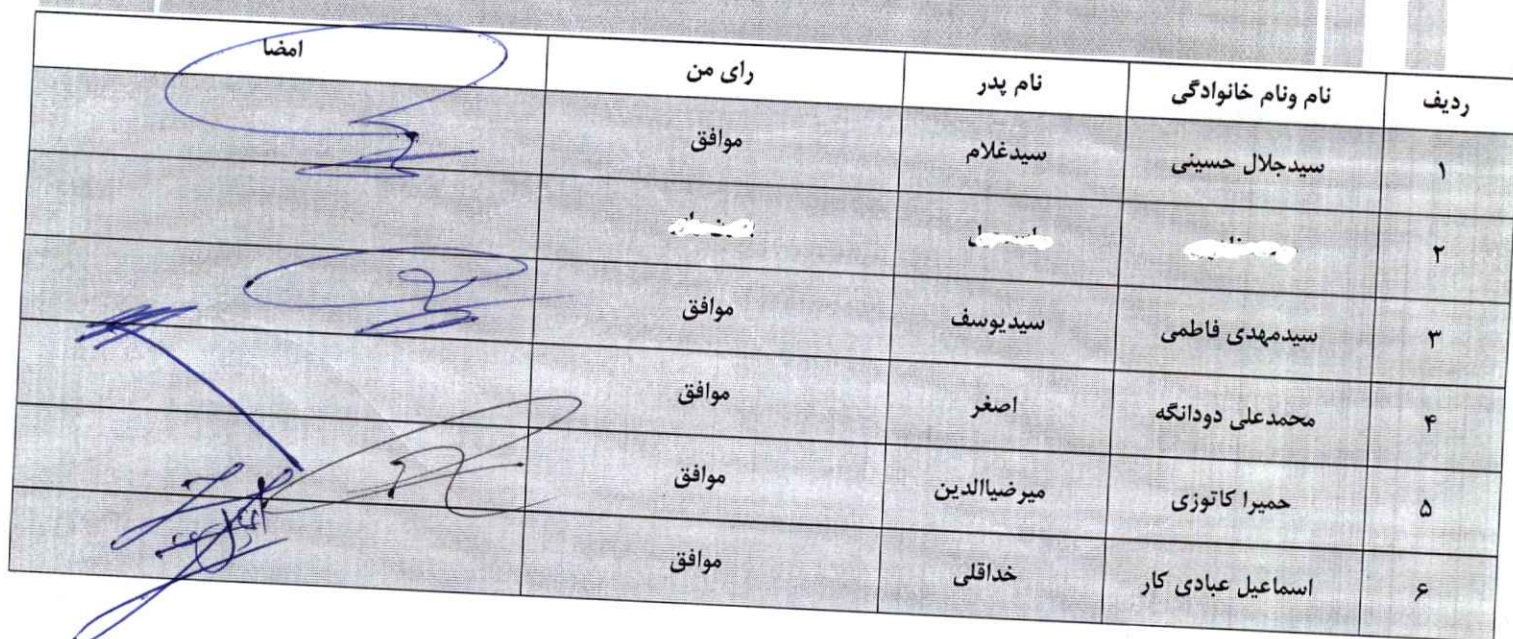 ردیف نام ونام خانوادگی نام پدر رای من امضا
۱ سیدجلال حسینی سیدغلام موافق
۲
۳ سیدمهدی فاطمی سیدیوسف موافق
۴ محمدعلی دودانگه اصغر موافق
۵ حمیرا کاتوزی میرضیاالدین موافق
۶ اسماعیل عبادی کار خداقلی موافق